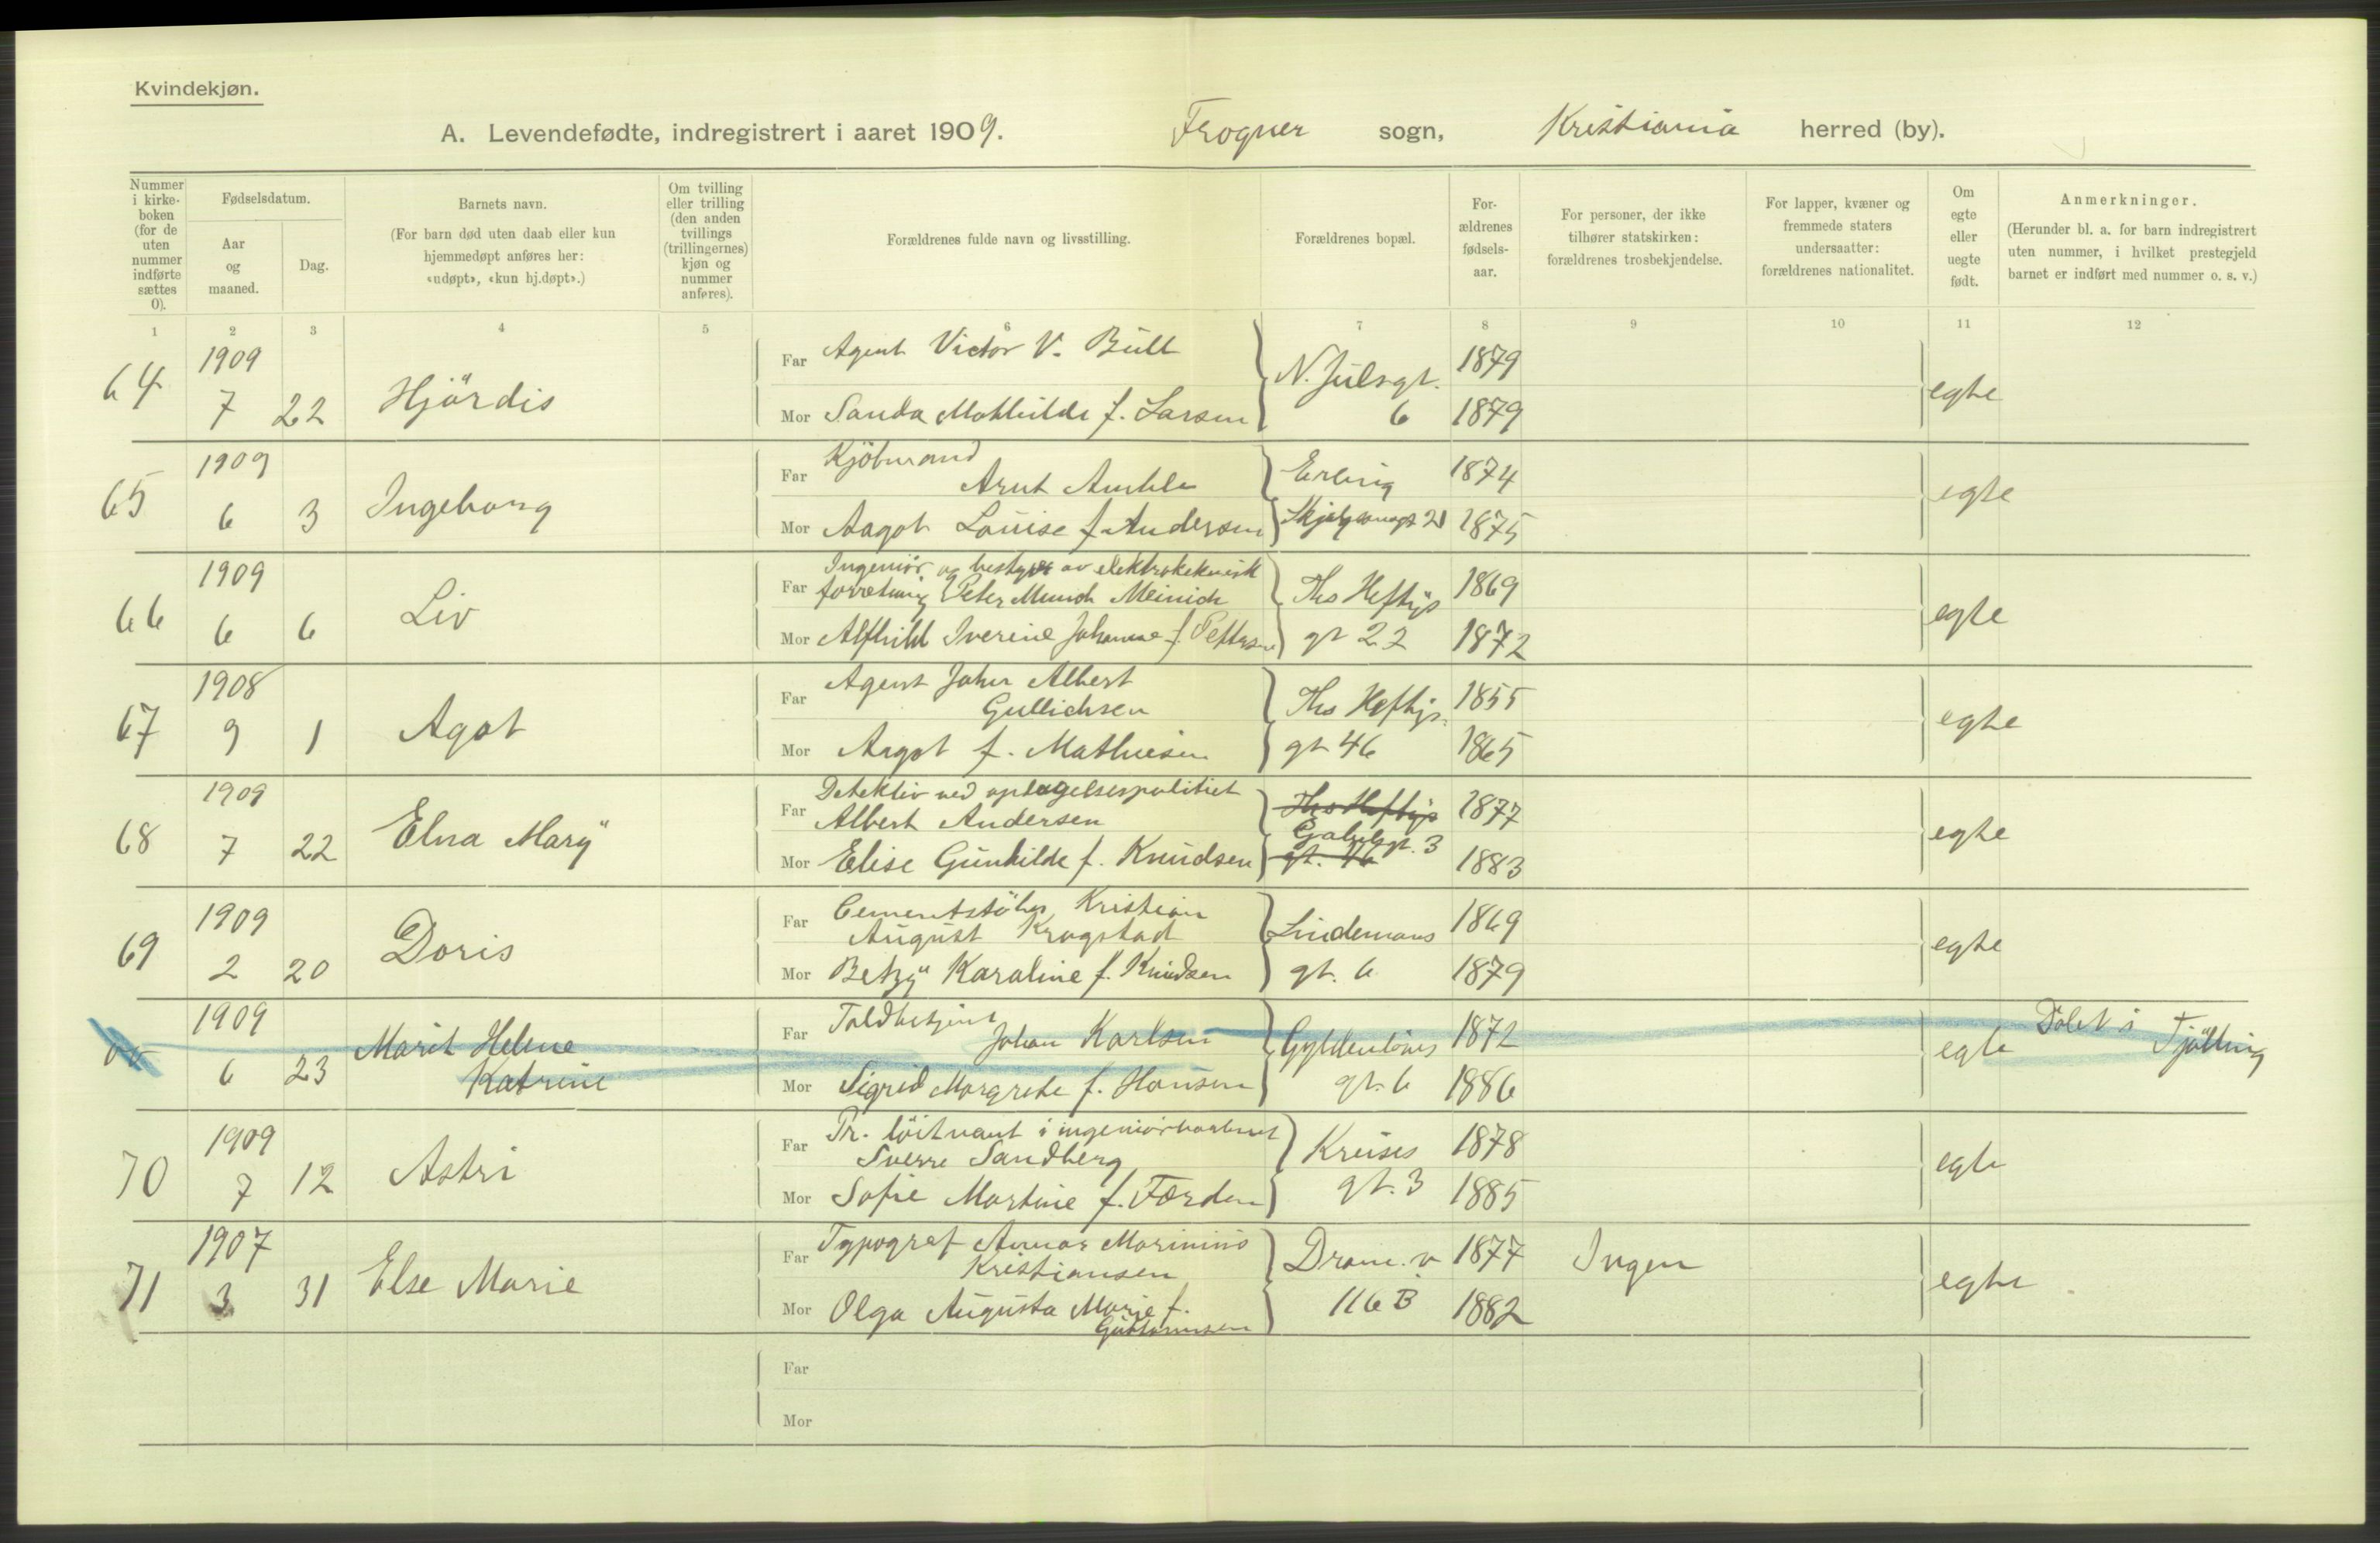 Kvindekjøn.
A. Levendefødte, indregistrert i aaret 1909. Frogner sogn, Kristiania herred (by).
Nummer i kirke-boken (for de uten nummer indførte sættes 0).
Fødselsdatum.
Aar og maaned.
Dag.
Barnets navn.
(For barn død uten daab eller kun hjemmedøpt anføres her: «udøpt», «kun hj.døpt».)
Om tvilling eller trilling (den anden tvillings (trillingernes) kjøn og nummer anføres).
Forældrenes fulde navn og livsstilling.
Forældrenes bopæl.
For-ældrenes fødsels-aar.
For personer, der ikke tilhører statskirken: forældrenes trosbekjendelse.
For lapper, kvæner og fremmede staters undersaatter: forældrenes nationalitet.
Om egte eller uegte født.
Anmerkninger.
(Herunder bl. a. for barn indregistrert uten nummer, i hvilket prestegjeld barnet er indført med nummer o. s. v.)
1 2 3 4 5 6 7 8 9 10 11 12
64 1909 7 22 Hjördis
Far Agent Victor V. Bull
Mor Sanda Mathilde f. Larsen
N. Julsgt. 6
1879
1879
egte
65 1909 6 3 Ingeborg
Far Kjöbmand Arnt
Mor Aagot Louise f. Andersen
Erling Skjalgsonsgt 21
1874
1875
egte
66 1909 6 6 Liv
Far Ingeniör og bestyrer av elektroteknisk
forretning Peter Munch Meinich
Mor Alfhild Iverine Johanne f. Petterson
Ths Heftys
gt 22
1869
1872
egte
67 1908 9 1 Agot
Far Agent Johan Albert
Gullichsen
Mor Aagot f. Mathiesen
Ths Heftys.
gt 46
1855
1865
egte
68 1909 7 22 Elna Mary
Far Detektiv ved opdagelsespolitiet
Albert Andersen
Mor Elise Gunhilde f. Knudsen
Ths Heftys
Gabelsgt. 3
gt. 46
1877
1883
egte
69 1909 2 20 Doris
Far Cementstöber Kristian
August Krogstad
Mor Betzy Karoline f. Knudsen
Lindemans
gt. 6
1869
1879
egte
1909 6 23 Marit Helene
Katrine
Far Toldbetjent
Johan Karlsen
Mor Sigrid Margrete f. Hansen
Gyldenlöves
gt. 6
1872
1886
egte
Döbt i Tjölling
70 1909 7 12 Astri
Far Pr. löitnant i ingeniörvaabnet
Sverre Sandberg
Mor Sofie Martine f. Færden
Kruses
gt. 3
1878
1885
egte
71 1907 3 31 Else Marie
Far Typograf Annar Marinius
Kristiansen
Mor Olga Augusta Marie f.
Dram. v
116 B
1877
1882
Ingen
egte
Far
Mor